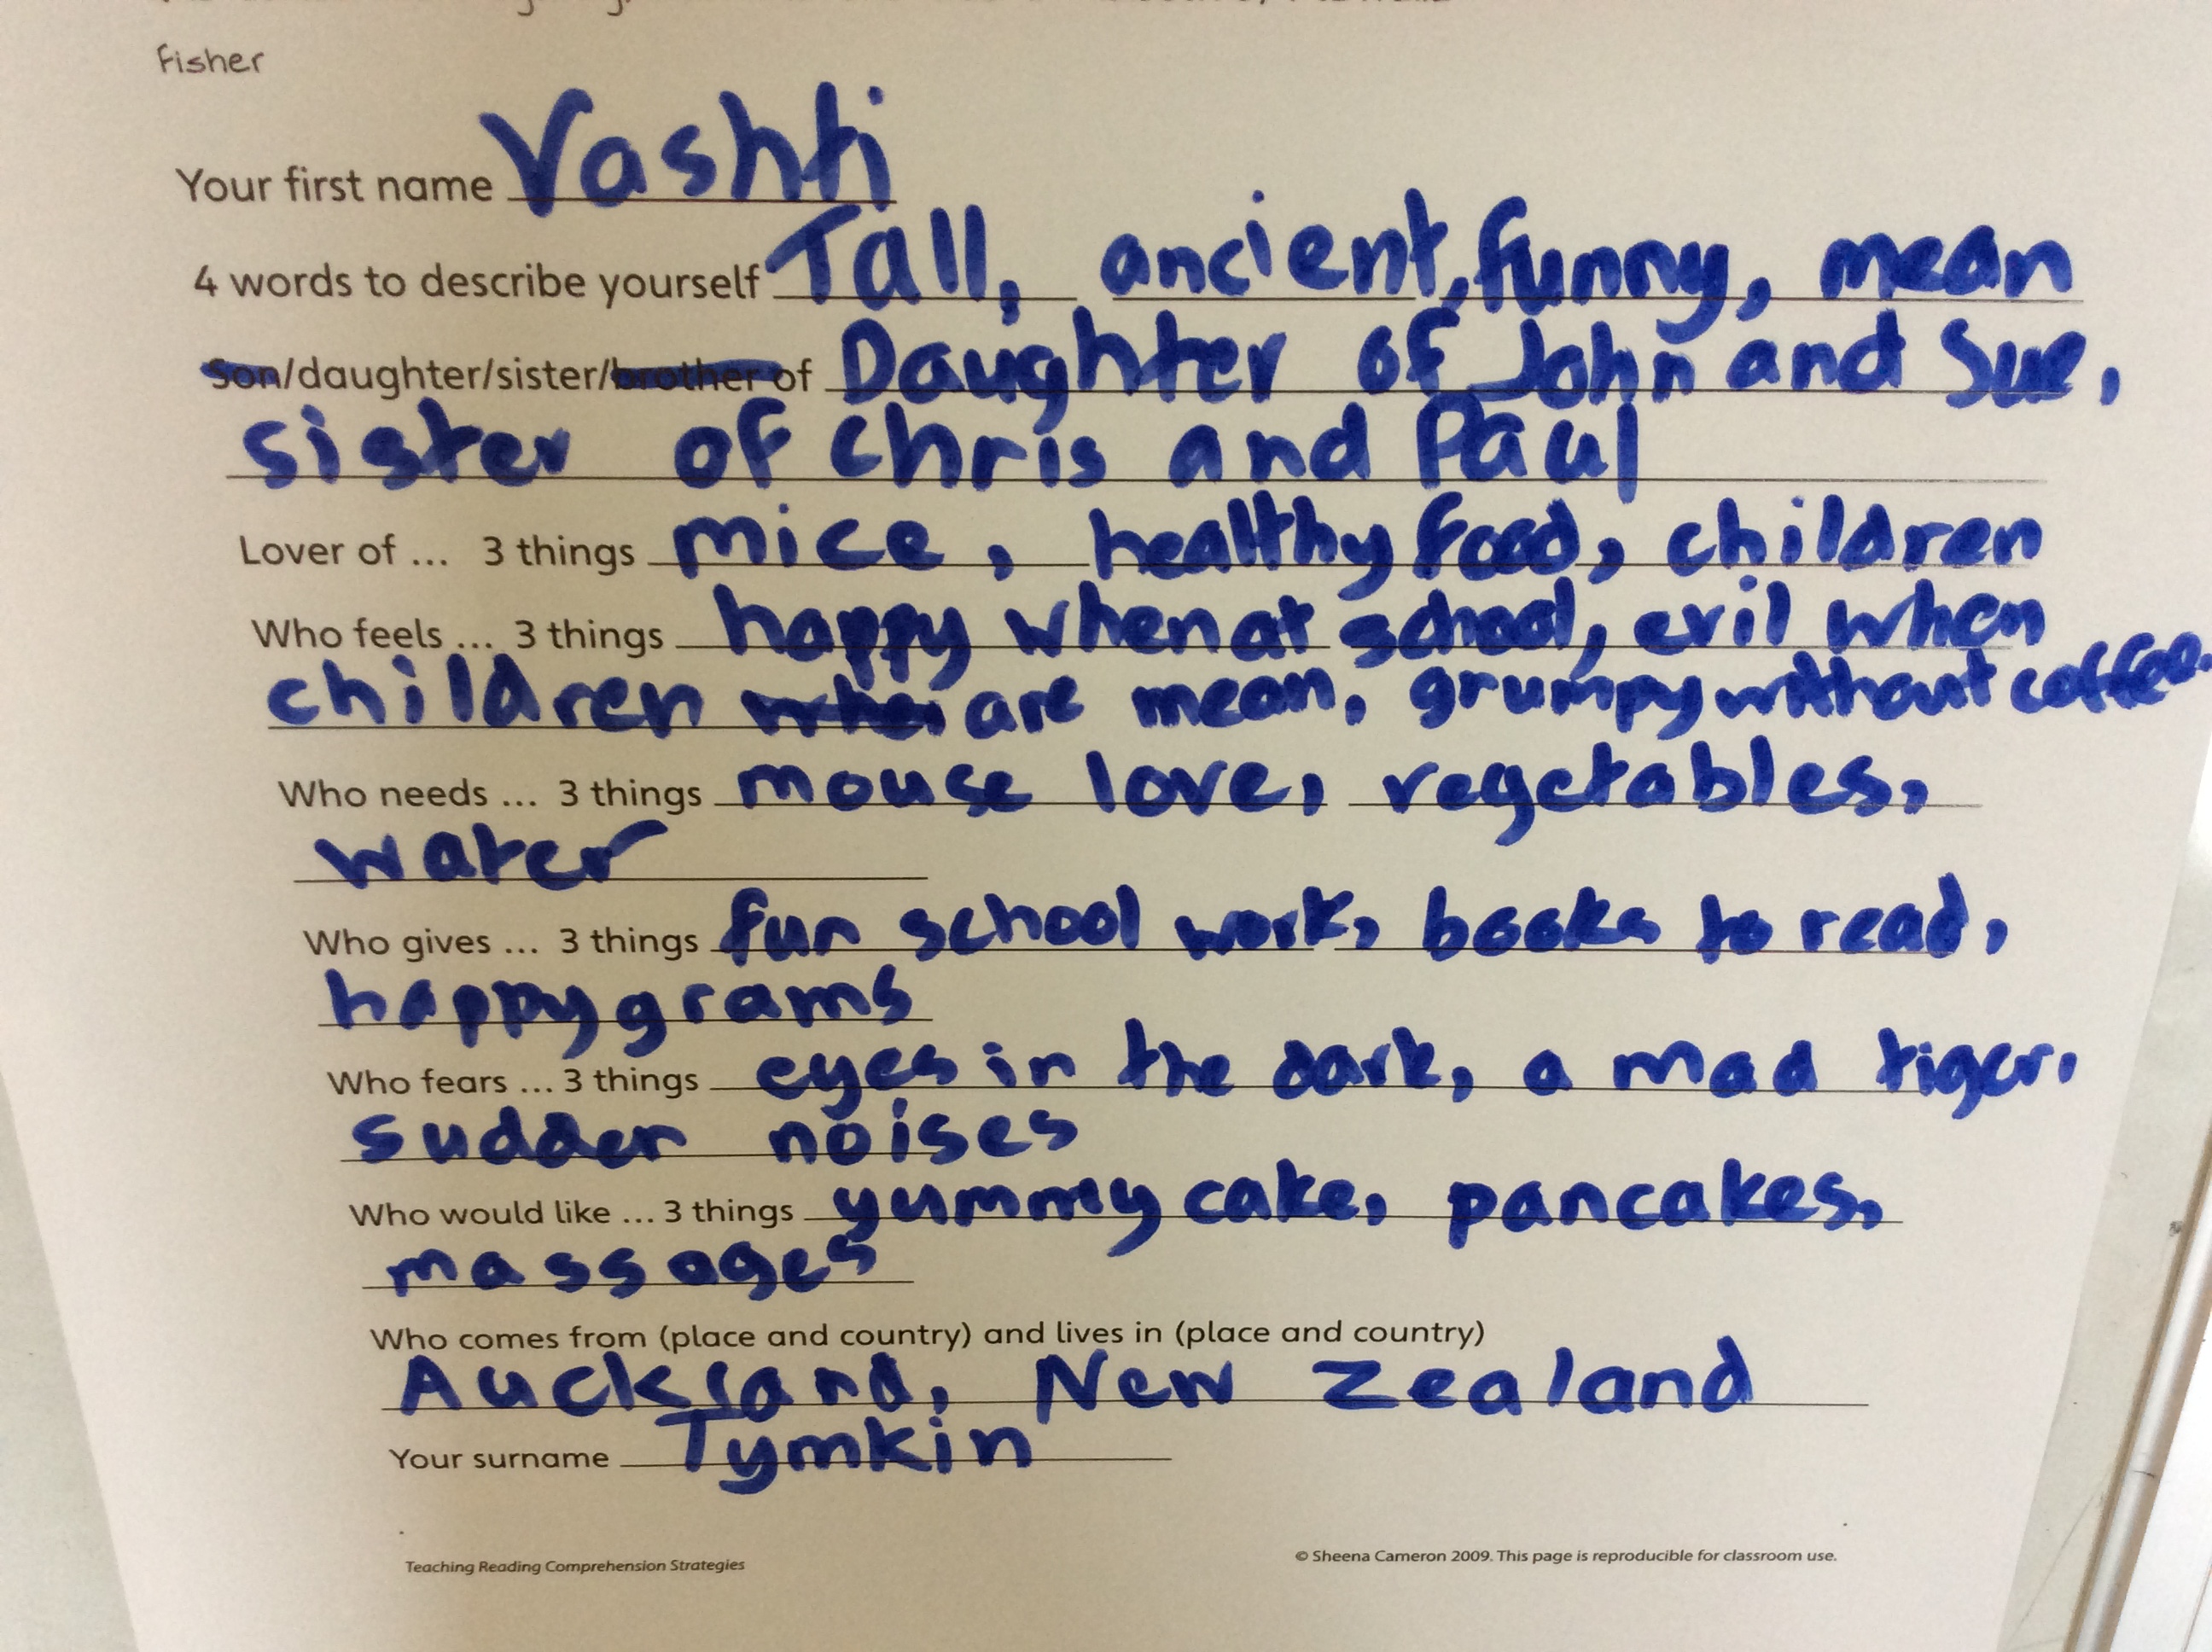 Fisher
Your first name Vashti
4 words to describe yourself Tall, ancient, funny, mean
Son/daughter/sister/brother of Daughter of John and Sue,
sister of Chris and Paul
Lover of ... 3 things mice, healthy food, children
Who feels ... 3 things happy when at school, evil when
children are mean, grumpy without coffee.
Who needs ... 3 things mouse love, vegetables,
water
Who gives ... 3 things fun school work, books to read,
happygrams
Who fears ... 3 things eyes in the dark, a mad tiger,
sudden noises
Who would like ... 3 things yummy cake, pancakes,
massages
Who comes from (place and country) and lives in (place and country)
Auckland, New Zealand
Your surname Tymkin
Teaching Reading Comprehension Strategies © Sheena Cameron 2009. This page is reproducible for classroom use.